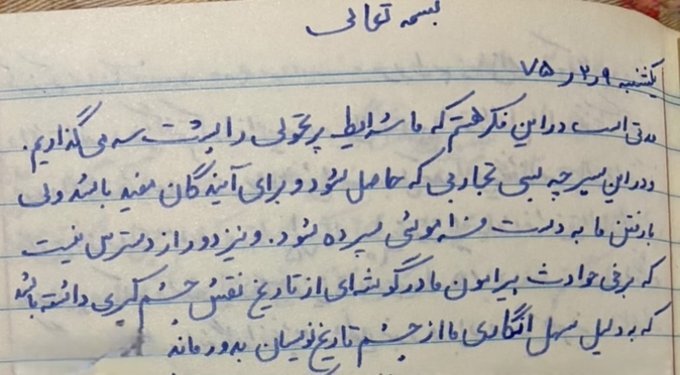 بسمه تعالی
یکشنبه ۹ر۲ر۷۵
مدتی است در این فکر هستم که ما شرایط پرتحولی را پشت سر می گذاریم.
و در این سیر چه بسی تجاربی که حاصل شود و برای آیندگان مفید باشد ولی
با رفتن ما به دست فراموشی سپرده شود. و نیز دور از دسترس نیست
که برخی حوادث پیرامون ما در گوشه ای از تاریخ نقش چشم گیری داشته باشد
که به دلیل سهل انگاری ما از چشم تاریخ نویسان بدور ماند